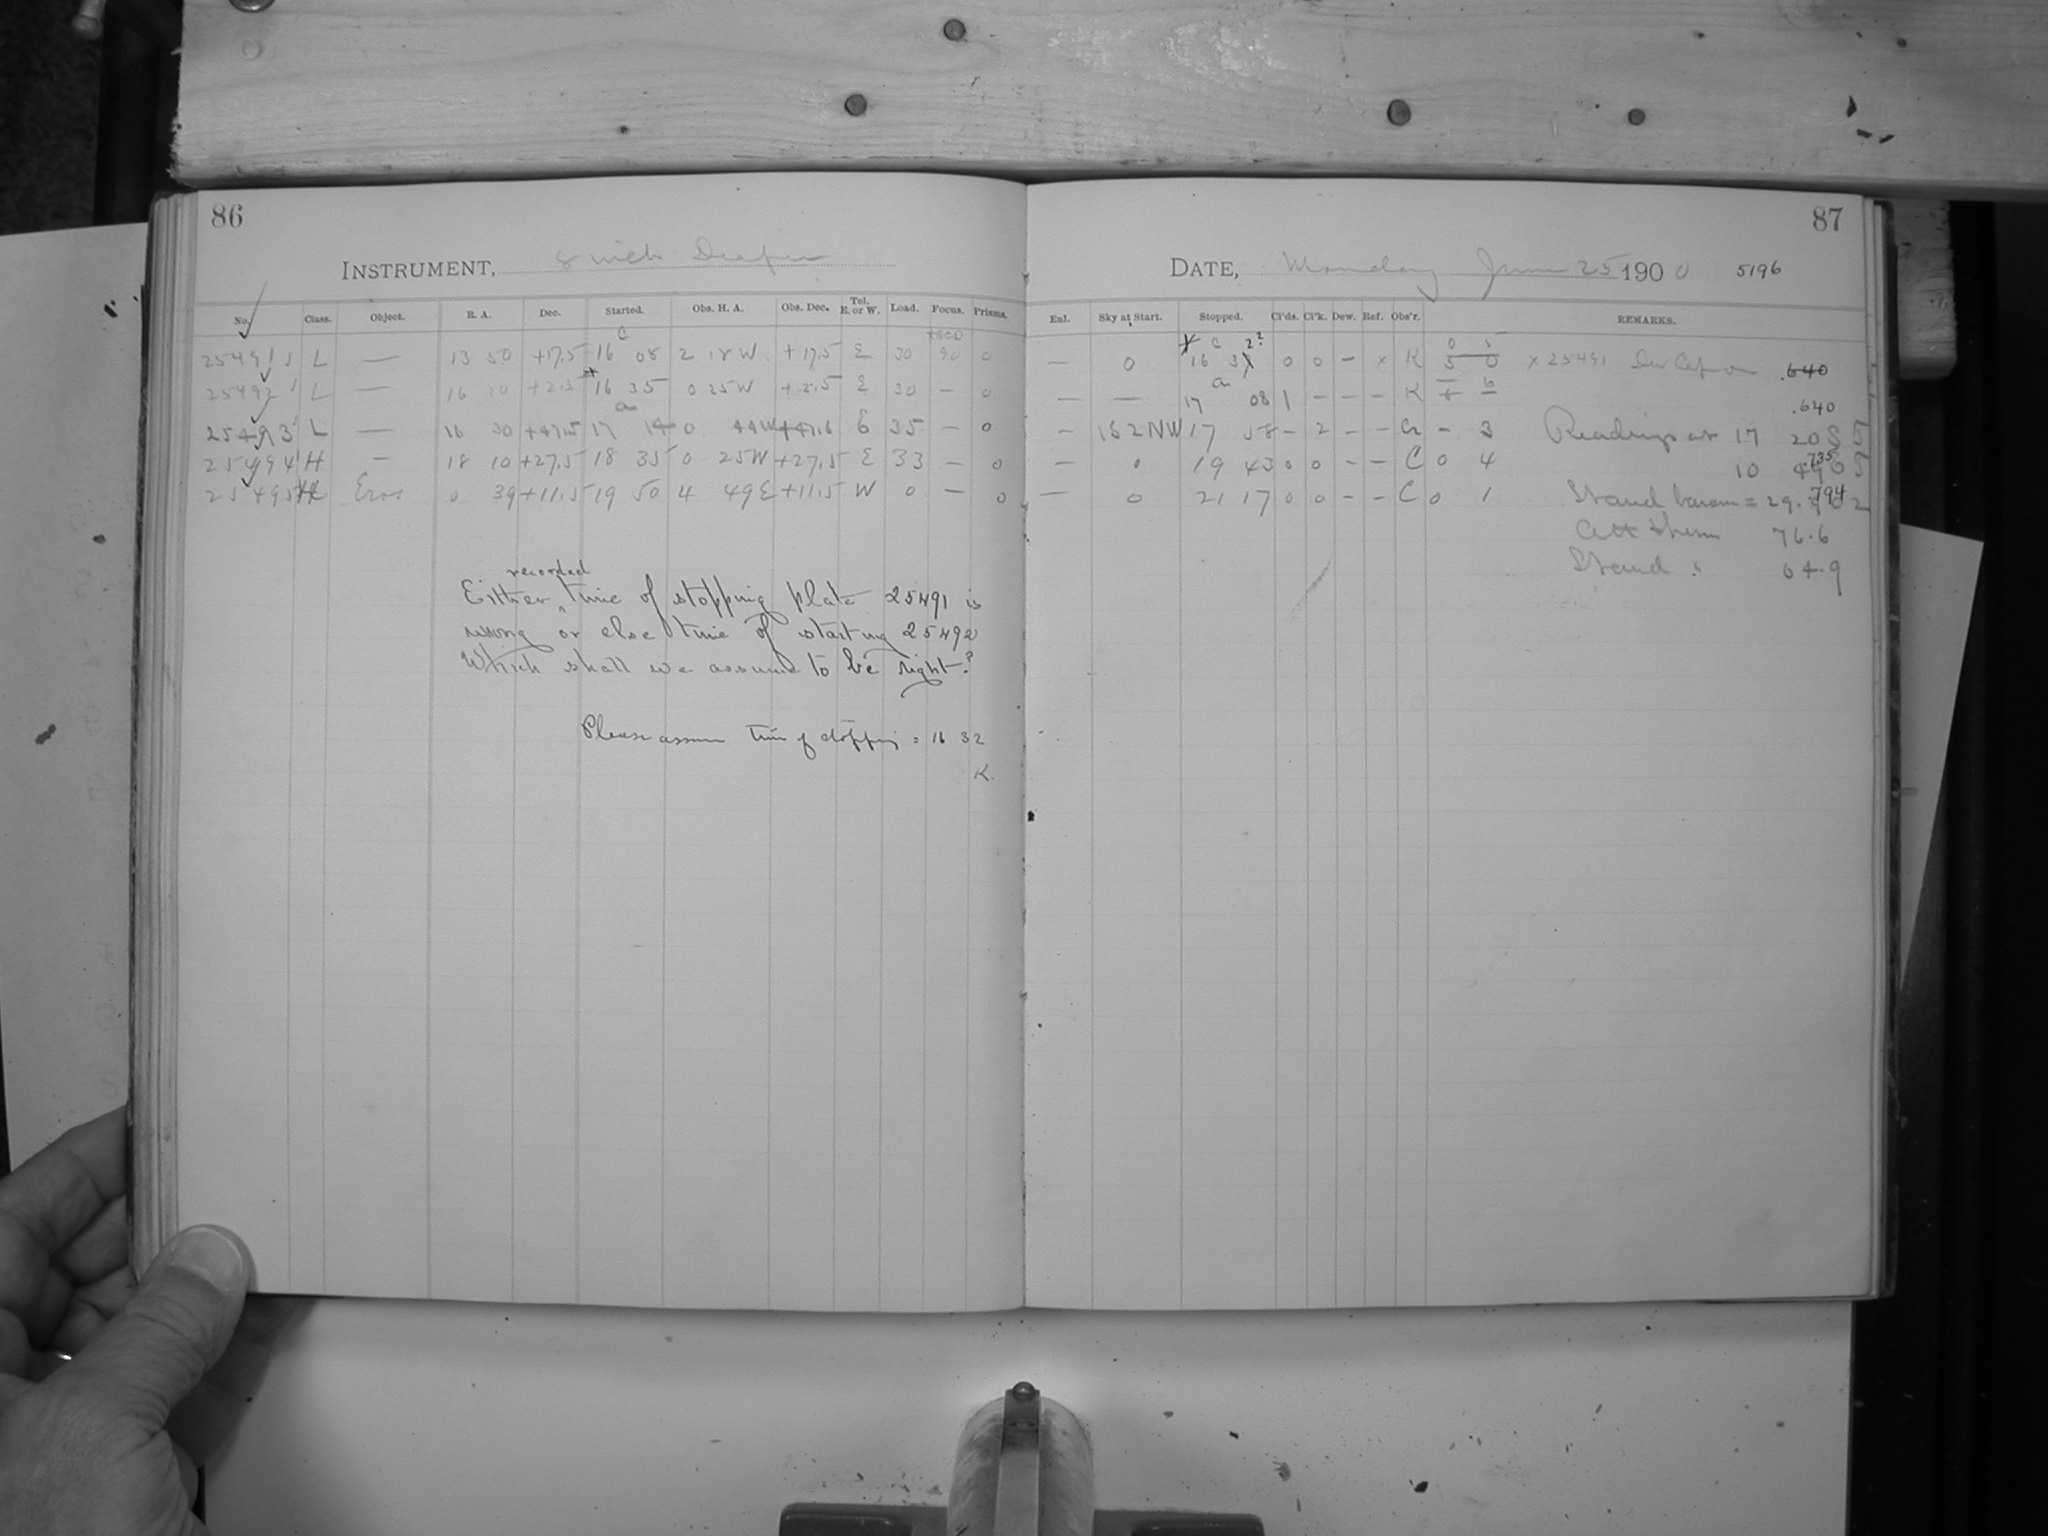 86
INSTRUMENT, 8 inch Draper
No. Class. Object. R. A. Dec. Started. Obs. H. A. Obs. Dec. Tel. E. or W. Load. Focus. Prisms.
25491 L — 13 50 +17.5 16 08 2 18W +17.5 E 30 90 0
25492 L — 16 10 +2.5 16 35 0 25W +2.5 E 30 — 0
25493 L — 16 30 +47.5 17 14 0 44W +47.6 E 35 — 0
25494 H — 18 10 +27.5 18 35 0 25W +27.5 E 33 — 0
25495 Eros 0 39 +11.5 19 50 4 49E +11.5 W 0 — 0
recorded
Either ^ time of stopping plate 25491 is
wrong or else time of starting 25492
Which shall we assume to be right?
Please assume time of stopping = 16 32
K.
87
DATE, Monday June 25 1900 5196
Enl. Sky at Start. Stopped. Cl'ds. Cl'k. Dew. Ref. Obs'r. REMARKS.
— 0 16 3 0 0 – x K x 25491 Dew Cap on .640
— — 17 08 1 – – – K .640
— 1S2NW 17 58 – 2 – – – 3 Readings at 17 20
— 0 19 43 0 0 – – C 0 4 10 .735
— 0 21 17 0 0 – – C 0 1 Stand barom = 29. 794
Att therm 76.6
Stand " 64.9